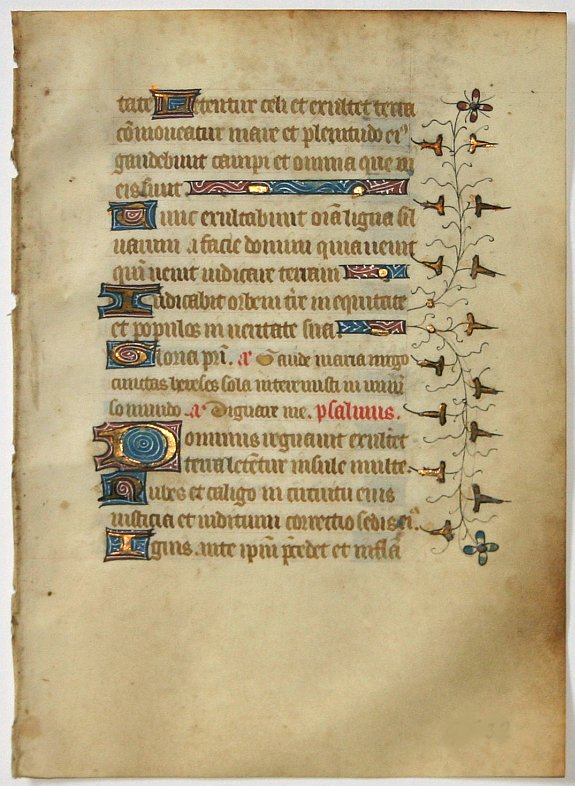 tate Letentur celi et exultet terra
cōmoueatur mare et plenitudo eiꝰ
gaudebunt campi et omnia que in
eis sunt
Tunc exultabunt oīa ligna sil
uarum a facie domini quia uenit
qm̄ uenit iudicare terram
Iudicabit orbem tr̄e in equitate
et populos in ueritate sua.
Gloria pr̄i. a' Gaude maria uirgo
cunctas hereses sola interemisti in uniu
so mundo. a' Dignare me. psalmus.
Dominus regnauit exultet
terra letētur insule multe
Nubes et caligo in circuitu eius
iusticia et iudicium correctio sedis eiꝰ.
Ignis ante ipm̄ p̄cedet et infla